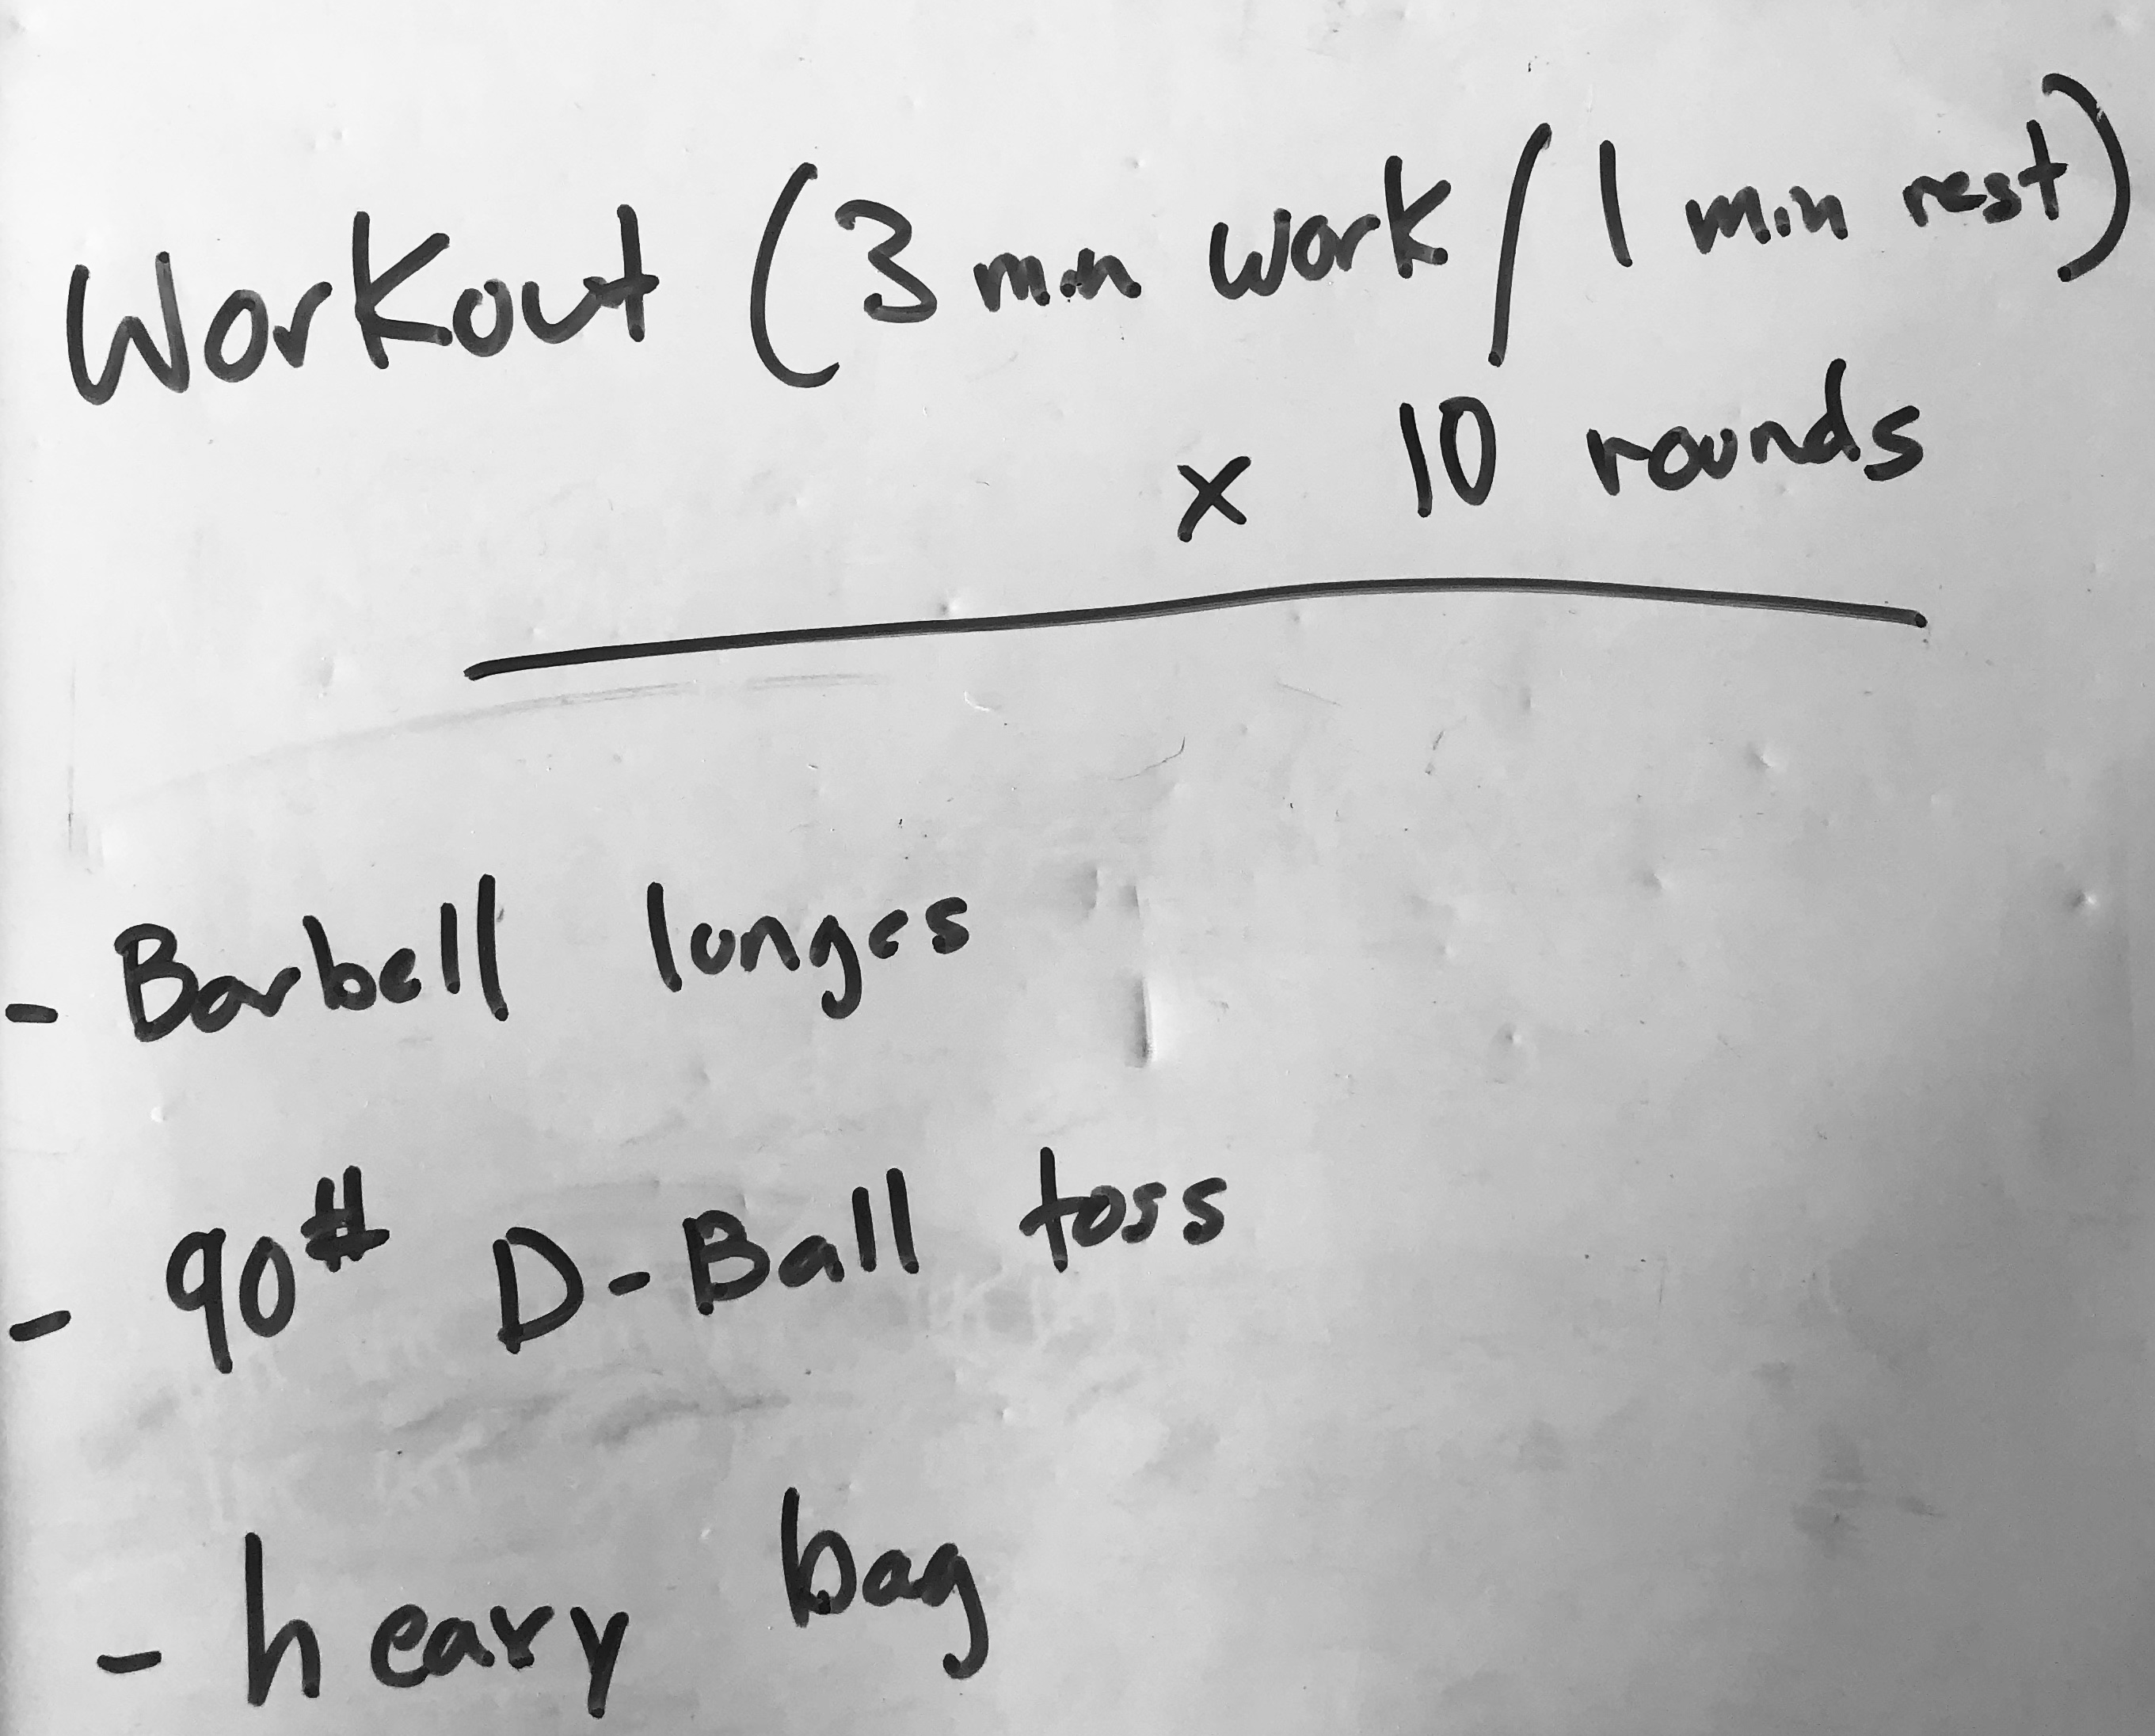 Workout (3 min work / 1 min rest)
x 10 rounds
- Barbell lunges
- 90# D-Ball toss
- heavy bag